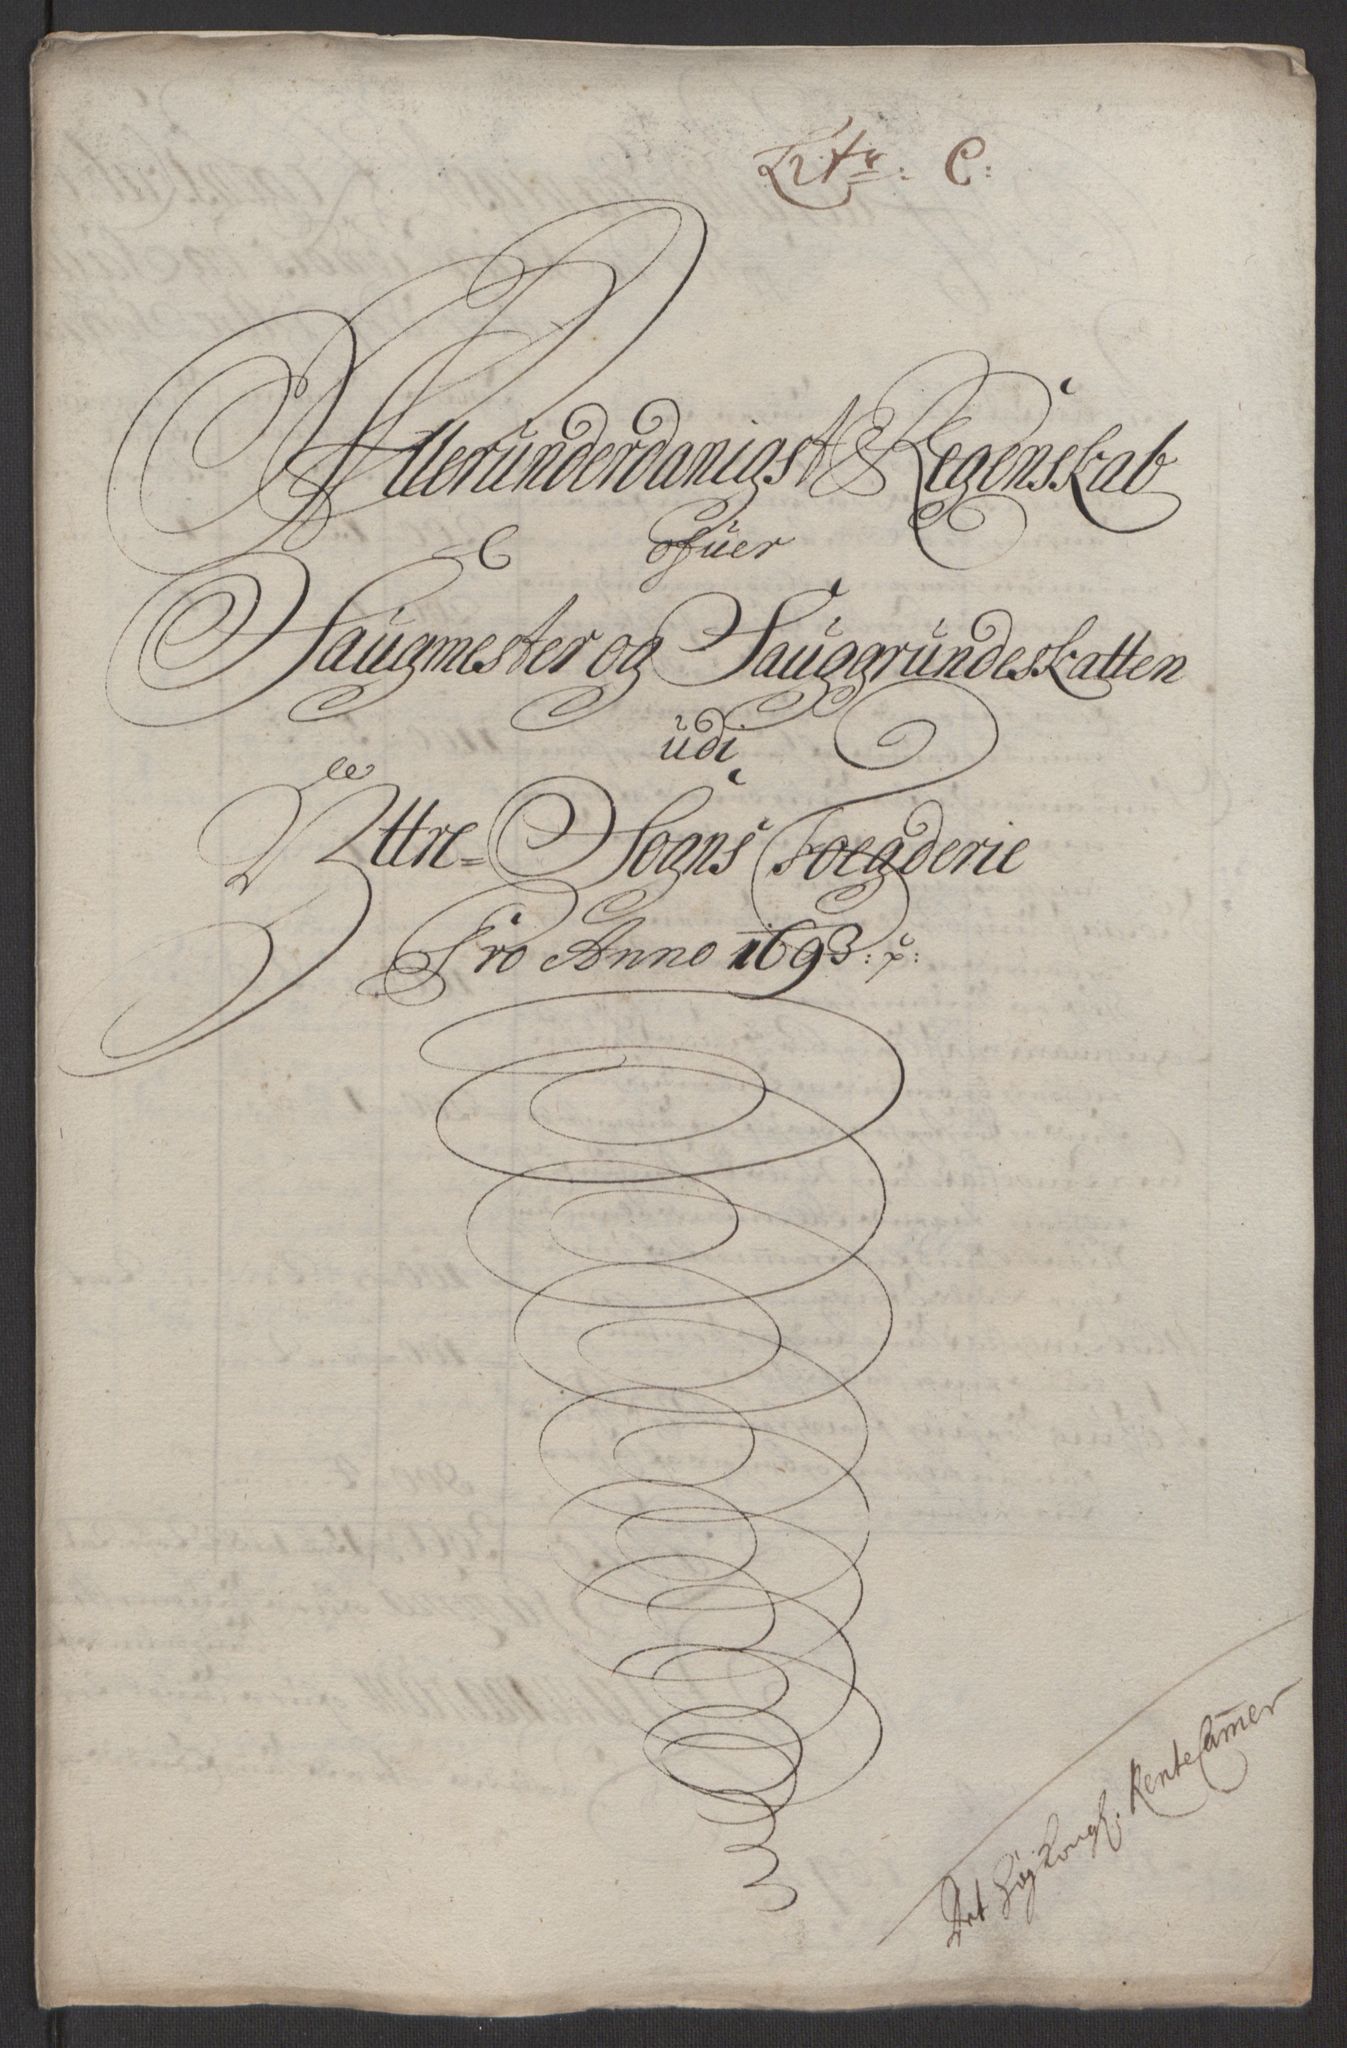 Litr: C:
Alleründerdanigst Regenskab
ofüer
Saugmester og Sauggründeskatten
üdi
Yttre- Sogns Foegderie
Pro Anno 1693:
Det Höy Kongl. Rente Cammer